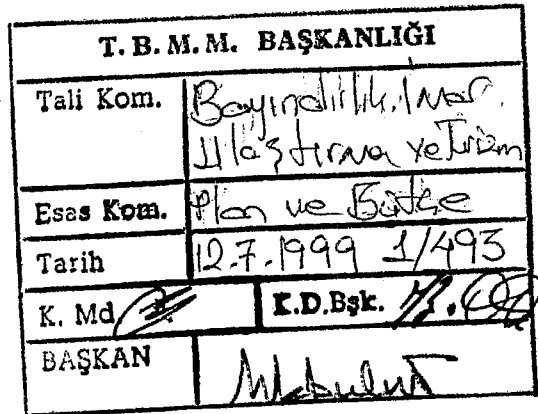 T. B. M. M. BAŞKANLIĞI
Tali Kom. Bayındırlık, İmar,
Ulaştırma ve Turizm
Esas Kom. Plan ve Bütçe
Tarih 12.7.1999 1/493
K. Md. K.D.Bşk.
BAŞKAN